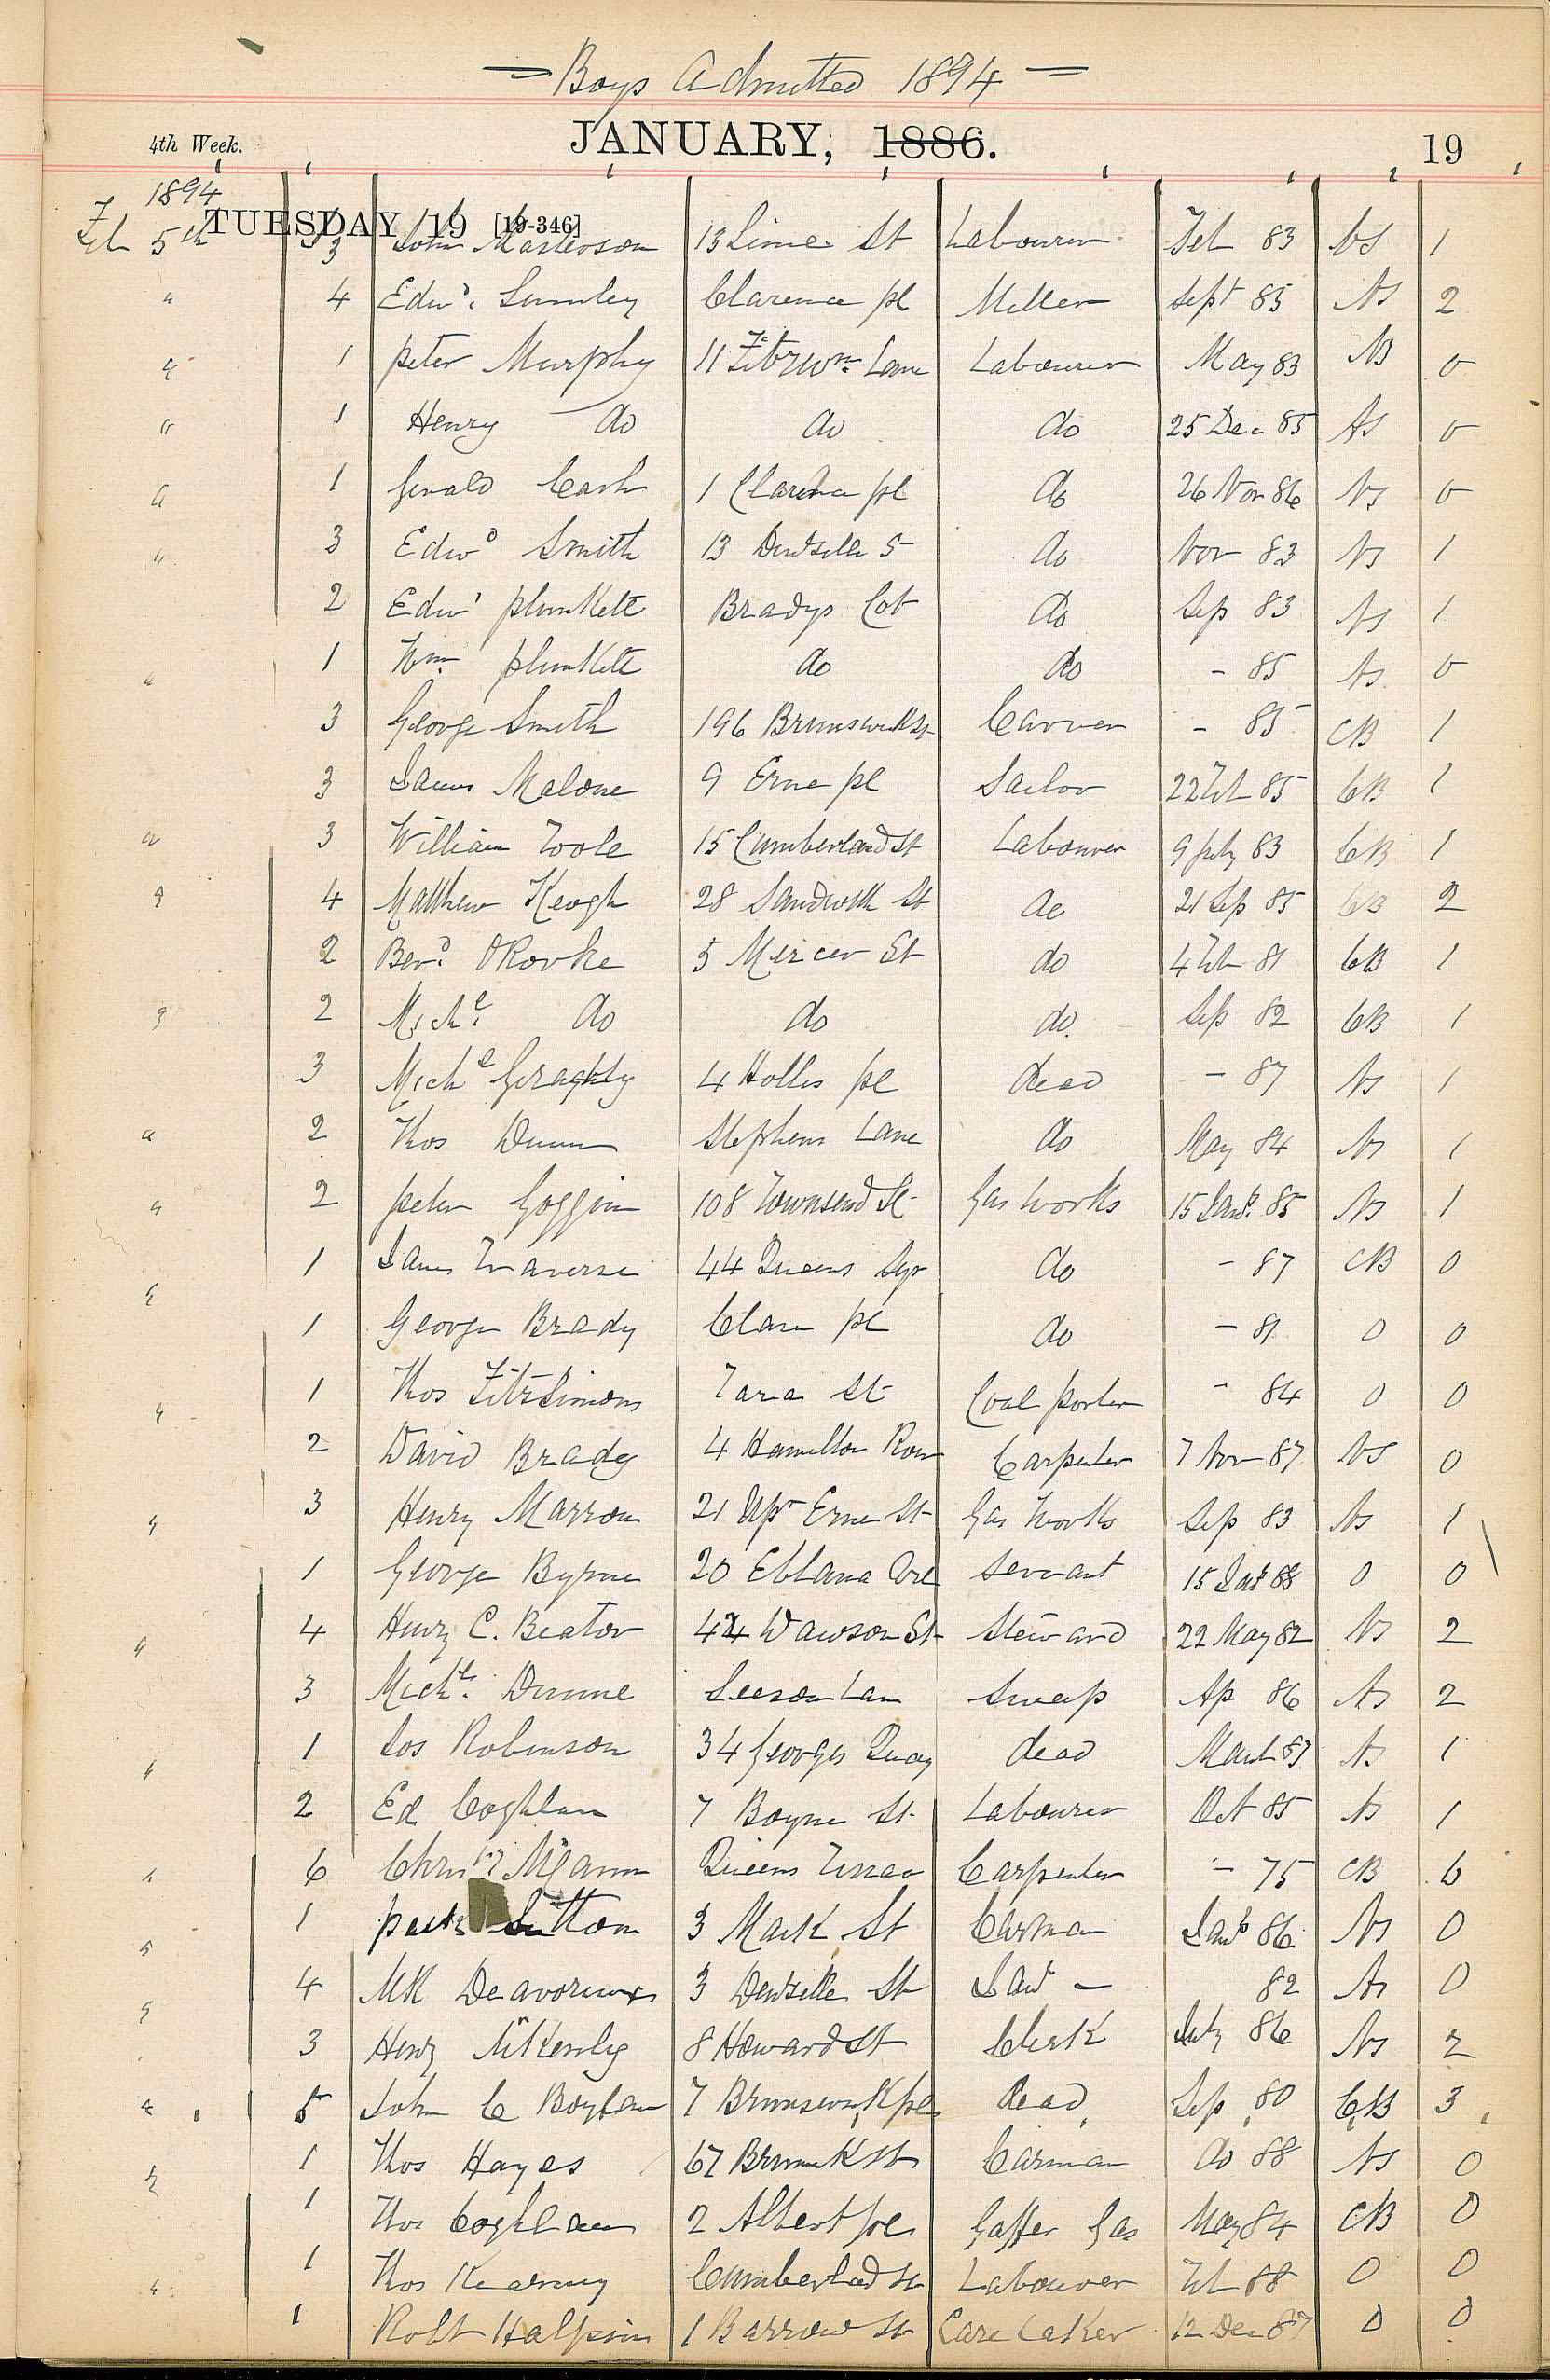 Boys Admitted 1894
4th Week. JANUARY, 1886. 19
1894
TUESDAY 19 [19-346]
Feb 5th 3 John Masterson 13 Lime St Labourer Feb 83 NS 1
" 4 Edwd. Clarence pl Miller Sept 85 NS 2
" 1 Peter Murphy 11 Fitzwm. Lane Labourer May 83 NS 0
" 1 Henry do do do 25 Dec 85 NS 0
" 1 Gerald Cash 1 Clarence pl do 26 Nov 86 NS 0
" 3 Edwd Smith 13 Denzille S do Nov 83 NS 1
2 Edwd Plunkett Bradys Cot do Sep 83 NS 1
" 1 Wm. Plunkett do do - 85 NS 0
3 George Smith 196 Brunswick St Carver - 85 CB 1
3 James Malone 9 Erne pl Sailor 22 Feb 85 CB 1
" 3 William Toole 15 Cumberland St Labourer 9 July 83 CB 1
" 4 Matthew Keogh 28 Sandwith St do 21 Sep 85 CB 2
2 Berd. ORorke 5 Mercer St do 4 Feb 81 CB 1
" 2 Michl. do do do Sep 82 CB 1
3 Michl Geraghty 4 Holles pl dead - 87 NS 1
" 2 Thos Dunn Stephens Lane do May 84 NS 1
" 2 Peter Goggin 108 Townsend St Gas Works 15 Jany. 85 NS 1
1 James Traverse 44 Queens Sqr do - 87 CB 0
" 1 George Brady Clare pl do - 81 0 0
" 1 Thos FitzSimons Tara St Coal porter - 84 0 0
2 David Brady 4 Hamilton Row Carpenter 7 Nov 87 NS 0
" 3 Henry Marron 21 Upr Erne St Gas Works Sep 83 NS 1
1 George Byrne 20 Eblana Servant 15 Jany 88 0 0
" 4 Henry C. Beator 44 Dawson St Steward 22 May 82 NS 2
3 Michl. Dunne Leeson Lane Sweep Ap 86 NS 2
" 1 Jos Robinson 34 Georges Quay dead March 87 NS 1
2 Ed Coghlan 7 Boyne St Labourer Oct 85 NS 1
" 6 Christr McGann Queens Terrace Carpenter - 75 CB 6
" 1 Patk Sutton 3 Mark St Carman Jany 86 NS 0
" 4 Ml Deavoreux 3 Denzille St - 82 NS 0
3 Henry McKenly 8 Howard St Clerk July 86 NS 2
" 5 John C Boylan 7 Brunswick pl dead Sep 80 CB 3
" 1 Thos Hayes 67 Brunsk St Carman do 88 NS 0
1 Thos Coghlan 2 Albert pl Gaffer Gas May 84 CB 0
" 1 Thos Kearney Cumberlad St Labourer Feb 88 0 0
1 Robt Halpin 1 Barrow St Care taker 12 Dec 87 0 0